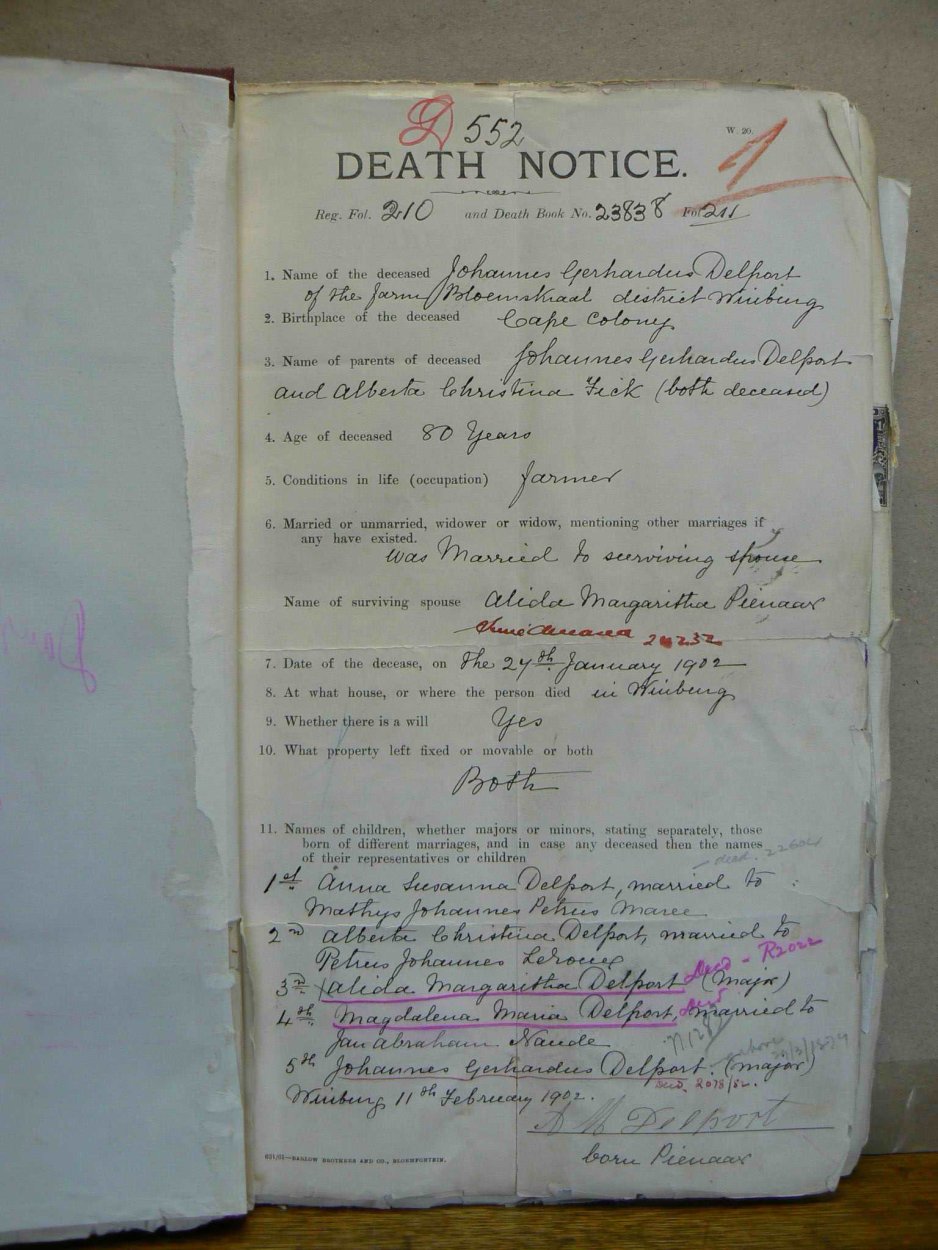 D 552
W. 20.
1
DEATH NOTICE.
Reg. Fol. 210 and Death Book No. 23838 Fol 211
1. Name of the deceased Johannes Gerhardus Delport
of the farm Bloemskraal district Winburg
2. Birthplace of the deceased Cape Colony
3. Name of parents of deceased Johannes Gerhardus Delport
and Alberta Christina Fick (both deceased)
4. Age of deceased 80 Years
5. Conditions in life (occupation) farmer
6. Married or unmarried, widower or widow, mentioning other marriages if
any have existed.
was Married to surviving spouse
Name of surviving spouse Alida Margaritha Pienaar
26232
7. Date of the decease, on the 24th January 1902
8. At what house, or where the person died in Winburg
9. Whether there is a will Yes
10. What property left fixed or movable or both
Both
11. Names of children, whether majors or minors, stating separately, those
born of different marriages, and in case any deceased then the names
of their representatives or children
dead.
1st Anna Susanna Delport, married to
Mathys Johannes Petrus Maree
2nd Alberta Christina Delport, married to
Petrus Johannes LeRoux
3rd Alida Margaritha Delport (Major)
Decd - R2022
4th Magdalena Maria Delport, married to
Jan Abraham Naude
5th Johannes Gerhardus Delport. (major)
Decd 2078/52.
Winburg 11th February 1902.
A M Delport
born Pienaar
631/01—BARLOW BROTHERS AND CO., BLOEMFONTEIN.